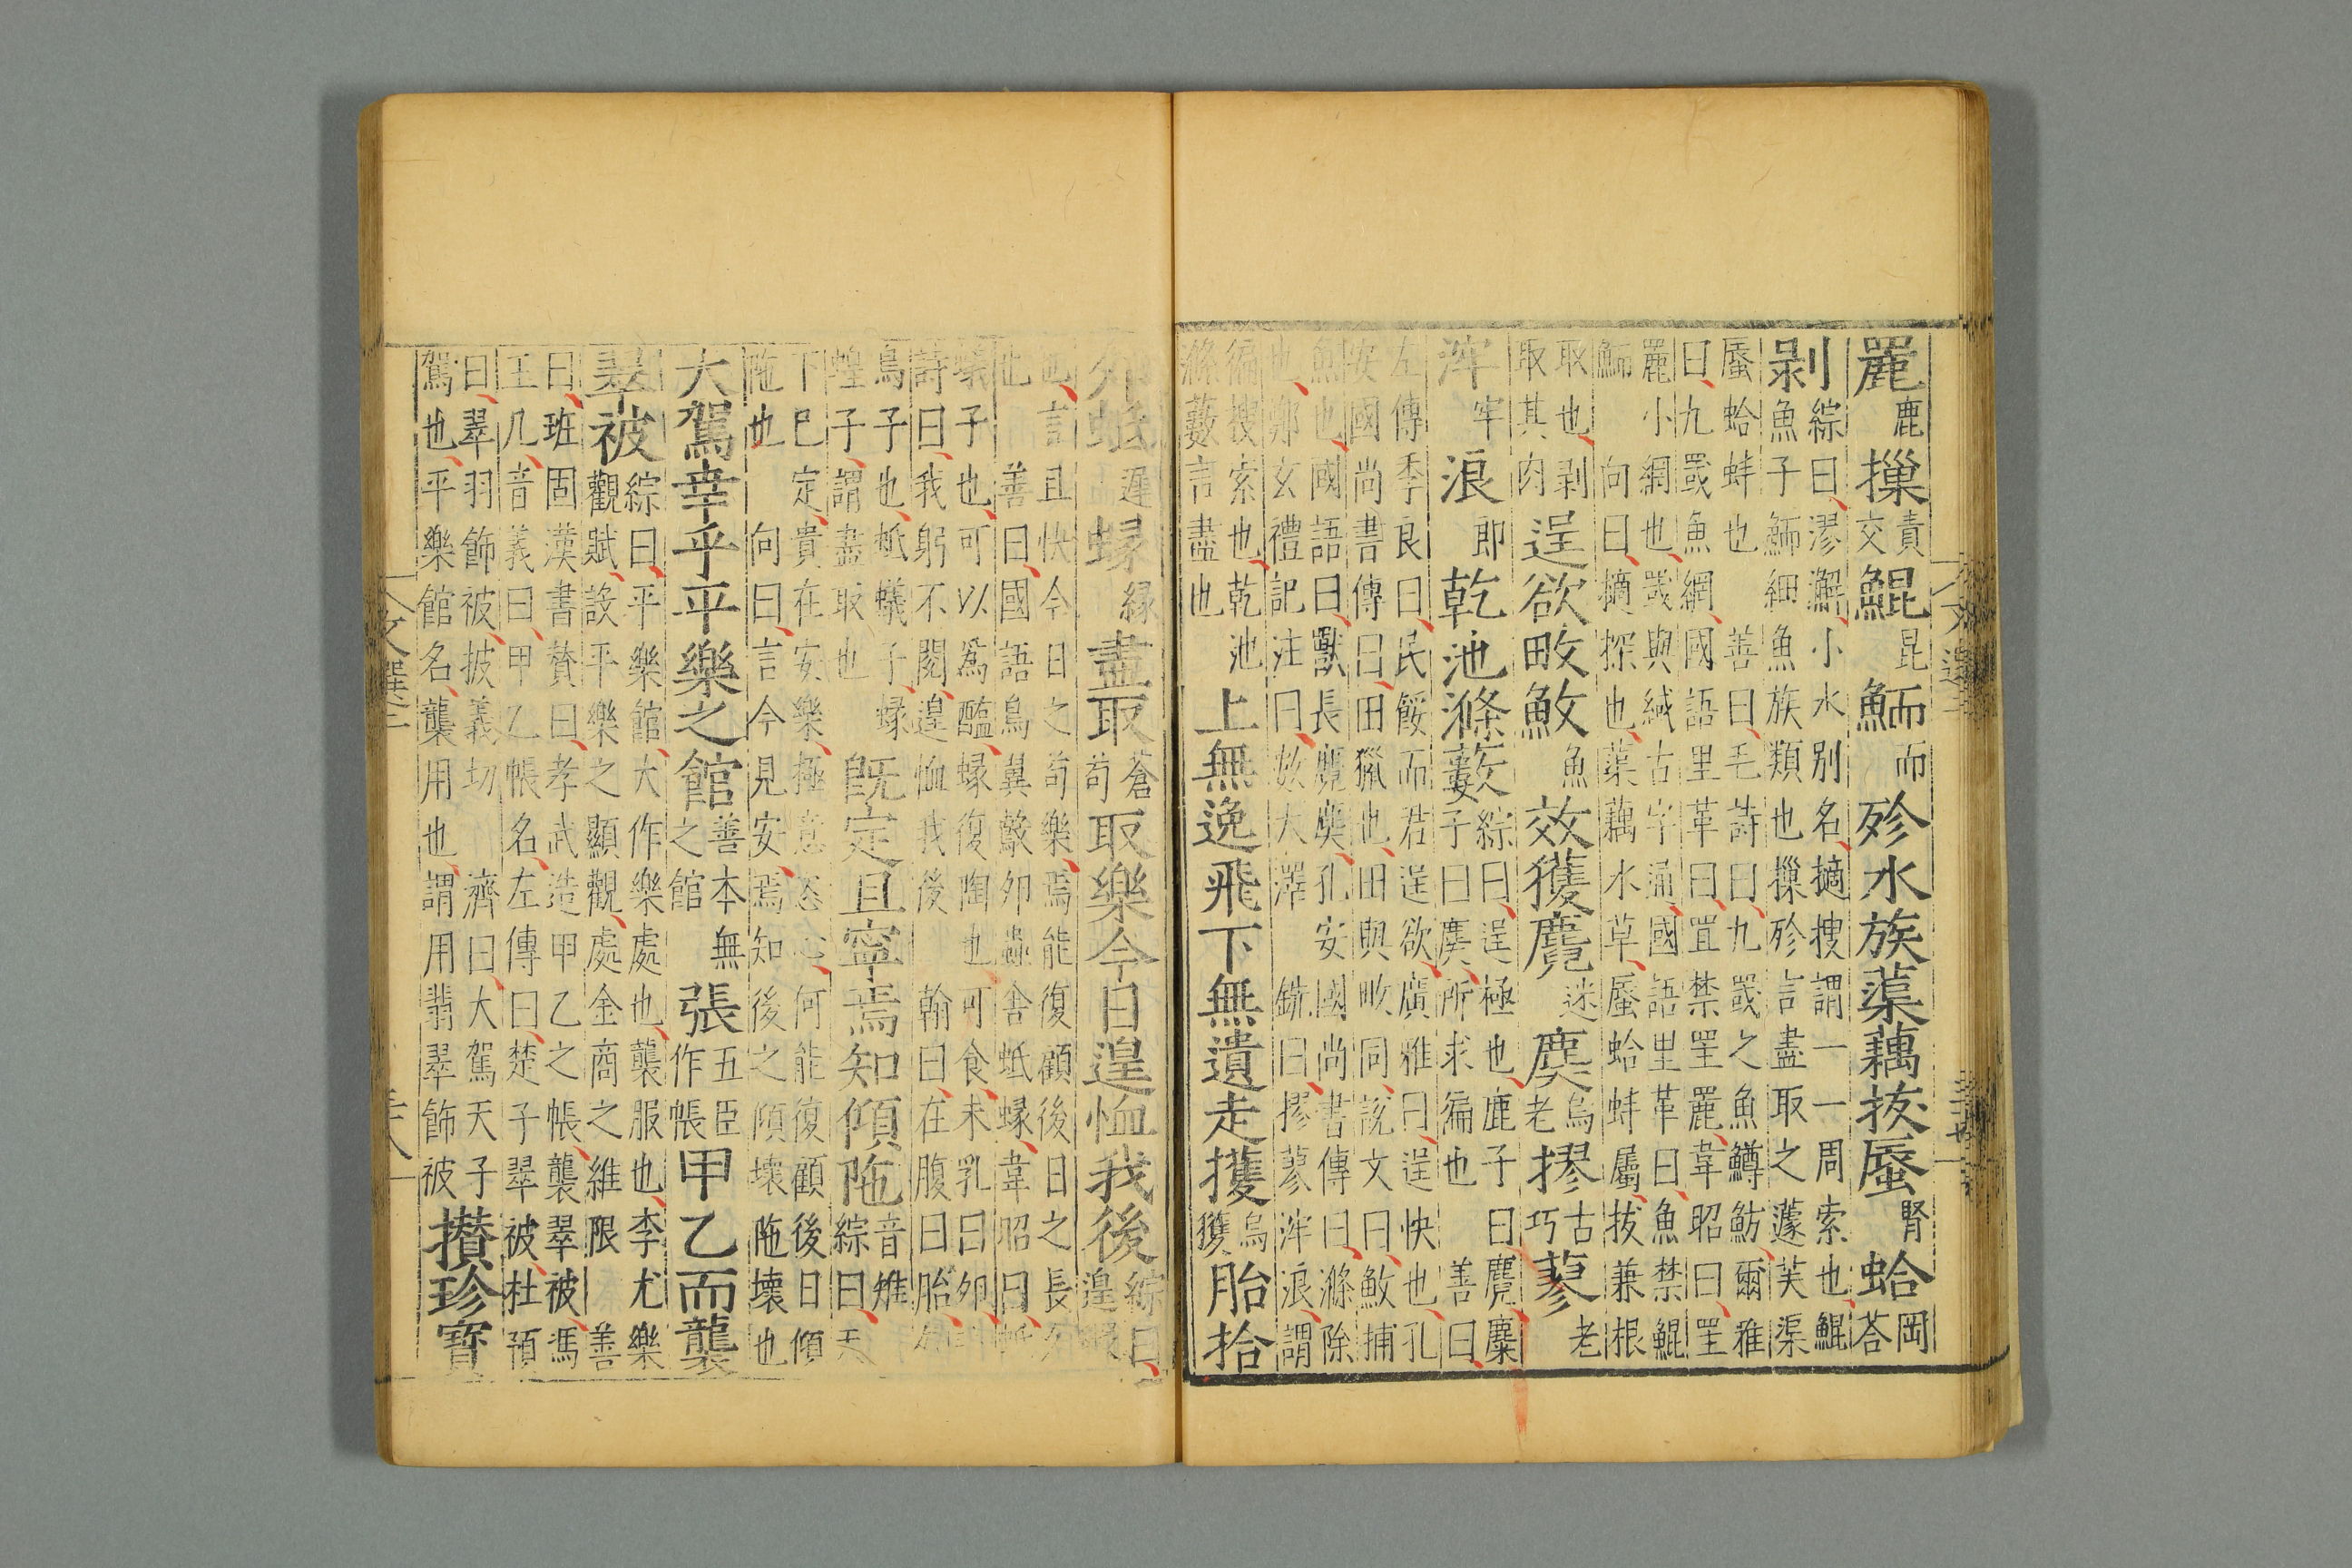 麗鹿摷責交鯤昆鮞而殄水族蕖藕拔蜃腎蛤岡荅
剝綜曰漻澥小水别名摘搜謂一一周索也鯤
魚子鮞細魚族類也摷殄言盡取之蘧芙渠
蜃蛤蚌也善曰毛詩曰九罭之魚鱒魴爾雅
曰九罭魚網國語里革曰罝禁罜麗韋昭曰罜
麗小網也罭與緎古字通國語里革曰魚禁鯤
鮞向曰摘探也蕖藕水草蜃蛤蚌屬拔兼根
取也剥取其肉逞欲畋䱷魚效獲麑迷麌烏老摎古巧蓼老
浶牢浪即乾池滌藪綜曰逞極也鹿子曰麑麋子曰麌所求徧也善曰
左傳季良曰民餒而君逞欲廣雅曰逞快也孔
安國尚書傳曰田獵也田與畋同說文曰䱷捕
魚也國語曰獸長麑麌孔安國尚書傳曰滌除
也鄭玄禮記注曰藪大澤銑曰摎蓼浶浪謂
徧搜索也乾池滌藪言盡也上無逸飛下無遺走擭烏獲胎拾
卵蚳遲蝝縁盡取蒼茍取樂今日遑恤我後綜曰遑暇
也言且快今日之茍樂焉能復顧後日之長久
也善曰國語鳥翼鷇卵蟲舍蚳蝝韋昭曰蚳
蟻子也可以爲醢蝝復陶也可食未乳曰卵
詩曰我躬不閱遑恤我後翰曰在腹曰胎
鳥子子也蚳蟻子蝝蝗子謂盡取也旣定且寧焉知傾陁音雉綜曰天
下已定貴在安樂極意恣心何能復顧後日傾
陁也向曰言今見安焉知後之傾壞陁壞也
大駕幸乎平樂之館善本無之館張五臣作帳甲乙而襲
翠被綜曰平樂館大作樂處也襲服也李尤樂
觀賦設平樂之顯觀處金商之維限善
曰班固漢書賛曰孝武造甲乙之帳襲翠被馮
玉几音義曰甲乙帳名左傳曰楚子翠被杜預
曰翠羽飾被披義切濟曰大駕天子
駕也平樂館名襲用也謂用翡翠飾被攅珍寶
文選二